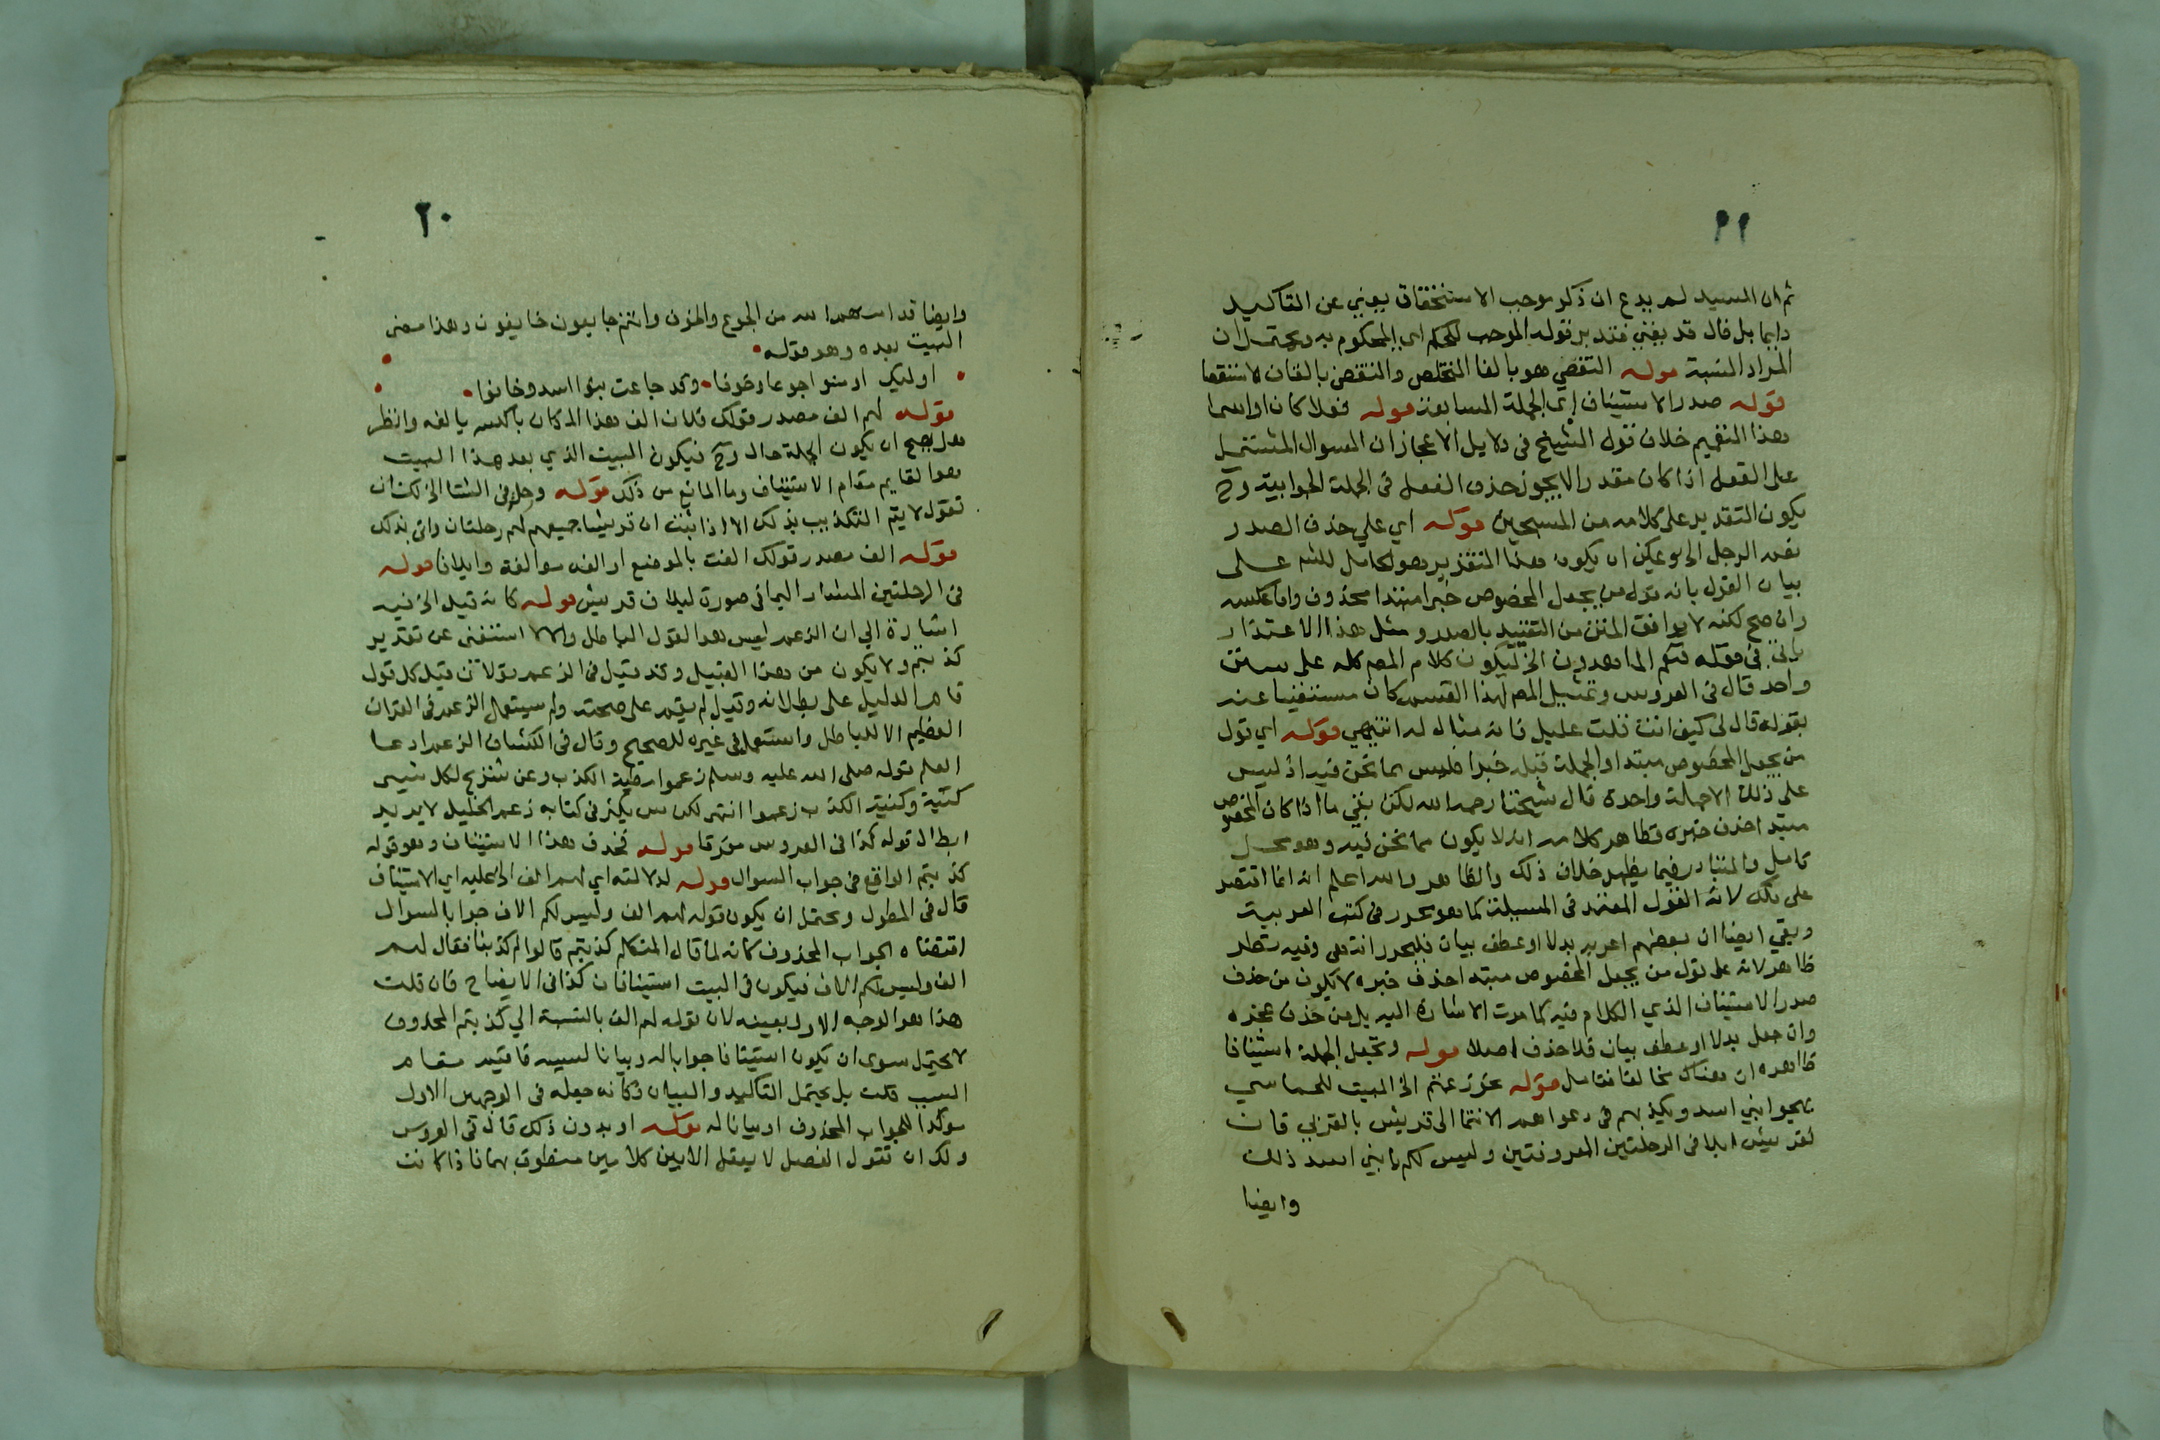 ٢٩
ثم ان السيد لم يدع ان ذكر موجب الاستحقاق يغني عن التاكيد
دايما بل قال قد يغني فتدبر قوله الموجب للحكم اي المحكوم به ويحتمل ان
المراد النسبة قوله التفصي هو بالفا التخلص والتقصي بالقاف الاستقصا
قوله صدر الاستيناف اي الجملة السابقة قوله فعلا كان او اسما
هذا التعميم خلاف قول الشيخ في دلايل الاعجاز ان السوال المشتمل
على الفعل اذا كان مقدرا لا يجوز حذف الفعل في الجملة الجوابية وح
يكون التقدير على كلامه من المسبحين قوله اي على حذف الصدر
نعم الرجل الخ ويمكن ان يكون هذا التقدير هو الحامل للشم على
بيان القول بانه قول من يجعل المخصوص خبر مبتدا محذوف واما عكسه
وان صح لكنه لا يوافق المتن من التقييد بالصدر ومثل هذا الاعتذار
ياتي في قوله فنعم الماهدون الخ ليكون كلام المصم كله على سنن
واحد قال في العروس وتمثيل المصم لهذا القسم كان مستغنيا عنه
بقوله قال لي كيف انت قلت عليل فانه مثال له انتهي قوله اي قول
من يجعل المخصوص مبتدا والجملة قبله خبرا فليس مما نحن فيه اذ ليس
على ذلك الا جملة واحدة قال شيخنا رحمه الله لكن بقي ما اذا كان المخصوص
مبتدا حذف خبره فظاهر كلامه انه لا يكون مما نحن فيه وهو محل
تامل والمتبادر فيما يظهر خلاف ذلك والظاهر والله اعلم انه انما اقتصر
على تلك لانه القول المعتمد في المسيلة كما هو محرر في كتب العربية
وبقي ايضا ان بعضهم اعربه بدلا او عطف بيان فليحرر انتهى وفيه نظر
ظاهر لانه على قول من يجعل المخصوص مبتدا حذف خبره لا يكون من حذف
صدر الاستيناف الذي الكلام فيه كما مرت الاشارة اليه بل من حذف عجزه
وان جعل بدلا او عطف بيان فلا حذف اصلا قوله وتجعل الجملة استينافا
ظاهره ان هناك مخالفا فتامل قوله عوز عنتم الخ البيت للحماسي
يهجو ابني اسد ويكذبهم في دعواهم الانتما الى قريش بالقربي فان
لقريش ايلافا في الرحلتين المعروفتين وليس لكم يا بني اسد ذلك
وايضا
٢٠
وايضا قد امنهم الله من الجوع والخوف وانتم جايعون خايفون وهذا معنى
البيت بعده وهو قوله
اوليك اومنوا جوعا وخوفا وقد جاعت بنوا اسد وخافوا
قوله لهم الف مصدر قولك فلان الف هذا المكان بالكسر يالفه وانظر
هل يصح ان يكون الجملة حالا وح فيكون البيت الذي بعد هذا البيت
هو القايم مقام الاستيناف وما المانع من ذلك قوله وحل في الشتا الخ لك ان
تقول لا يتم التكذيب بذلك الا اذا ثبت ان قريشا جميعهم لهم رحلتان واني بذلك
قوله الف مصدر قولك الفت بالموضع اوالف موالفة وايلافا قوله
في الرحلتين المشار اليها في صورة ليلاف قريش قوله كانه قيل الخ فيه
اشارة الي ان الزعم ليس هو القول الباطل والا لاستغنى عن تقدير
كذبتم ولا يكون من هذا القبيل وقد قيل في الزعم قولان قيل كل قول
قام الدليل على بطلانه وقيل لم يقم على صحته ولم يستعمل الزعم في القران
العظيم الا للباطل واستعمل في غيره للصحيح وقال في الكشاف الزعم ادعا
العلم قوله صلى الله عليه وسلم زعموا مطية الكذب وعن شريح لكل شيى
كنية وكنية الكذب زعموا انتهر لكن س يكثر في كتابه زعم الخليل لا يريد
ابطال قوله كذا في العروس مفرقا قوله فحذف هذا الاستيناف وهو قوله
كذبتم الواقع في جواب السوال قوله لدلالته اي لهم الف الخ عليه اي الاستيناف
قال في المطول ويحتمل ان يكون قوله لهم الف وليس لكم الاف جوابا لسوال
اقتضاه الجواب المحذوف كانه لما قال المتكلم كذبتم قالوا لم كذبنا فقال لهم
الف وليس لكم الاف فيكون في البيت استينافان كذا في الايضاح فان قلت
هذا هو الوجه الاول بعينه لان قوله لهم الف بالنسبة الي كذبتم المحذوف
لا يحتمل سوى ان يكون استينافا جوابا له وبيانا لسببه فاقيم مقام
السبب قلت بل يحتمل التاكيد والبيان فكانه جعله في الوجهين الاول
موكدا للجواب المحذوف او بيانا له قوله او بدون ذلك قال في العروس
ولك ان تقول الفصل لا يعقل الا بين كلامين منطوق بهما فاذا كانت